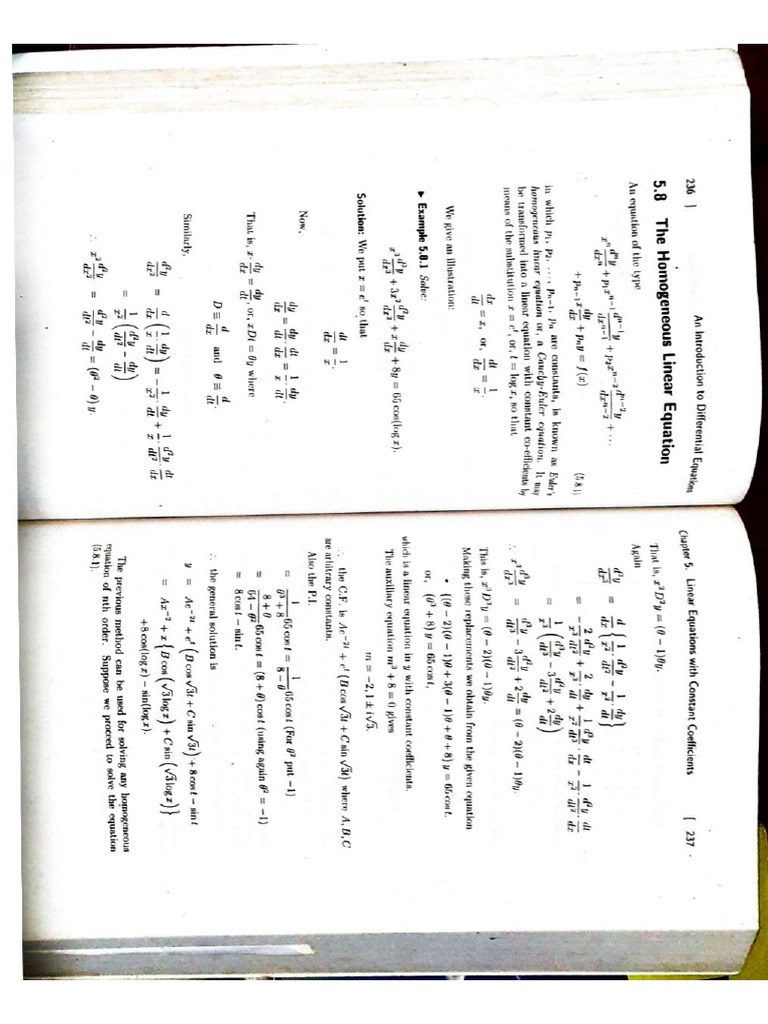 236 ] An Introduction to Differential Equations
5.8 The Homogeneous Linear Equation
An equation of the type
x^n d^n y/dx^n + p_1 x^{n-1} d^{n-1}y/dx^{n-1} + p_2 x^{n-2} d^{n-2}y/dx^{n-2} + ...
+ p_{n-1} x dy/dx + p_n y = f(x) (5.8.1)
in which p_1, p_2, ..., p_{n-1}, p_n are constants, is known as Euler's
homogeneous linear equation or, a Cauchy-Euler equation. It may
be transformed into a linear equation with constant co-efficients by
means of the substitution x = e^t, or, t = log x, so that
dx/dt = x, or, dt/dx = 1/x.
We give an illustration:
► Example 5.8.1 Solve:
x^3 d^3y/dx^3 + 3x^2 d^2y/dx^2 + x dy/dx + 8y = 65 cos(log x).
Solution: We put x = e^t so that
dt/dx = 1/x.
Now,
dy/dx = dy/dt · dt/dx = 1/x · dy/dt
That is, x · dy/dx = dy/dt, or, xDt = θy where
D ≡ d/dx and θ ≡ d/dt.
Similarly,
d^2y/dx^2 = d/dx (1/x · dy/dt) = − 1/x^2 · dy/dt + 1/x · d^2y/dt^2 · dt/dx
= 1/x^2 (d^2y/dt^2 − dy/dt)
∴ x^2 d^2y/dx^2 = d^2y/dt^2 − dy/dt = (θ^2 − θ) y.
Chapter 5. Linear Equations with Constant Coefficients [ 237
That is, x^2 D^2 y = (θ − 1)θy.
Again
d^3y/dx^3 = d/dx {1/x^2 · d^2y/dt^2 − 1/x^2 · dy/dt}
= − 2/x^3 d^2y/dt^2 + 2/x^3 · dy/dt + 1/x^2 · d^3y/dt^3 · dt/dx − 1/x^2 · d^2y/dt^2 · dt/dx
= 1/x^3 (d^3y/dt^3 − 3 d^2y/dt^2 + 2 dy/dt)
∴ x^3 d^3y/dx^3 = d^3y/dt^3 − 3 d^2y/dt^2 + 2 dy/dt = (θ − 2)(θ − 1)θy.
This is, x^3 D^3 y = (θ − 2)(θ − 1)θy.
Making these replacements we obtain from the given equation
{(θ − 2)(θ − 1)θ + 3(θ − 1)θ + θ + 8} y = 65 cos t,
or, (θ^3 + 8) y = 65 cos t,
which is a linear equation in y with constant coefficients.
The auxiliary equation m^3 + 8 = 0 gives
m = −2, 1 ± i√3.
∴ the C.F. is Ae^{−2t} + e^t (B cos √3t + C sin √3t) where A, B, C
are arbitrary constants.
Also the P.I.
= 1/(θ^3 + 8) 65 cos t = 1/(8 − θ) 65 cos t (For θ^2 put −1)
= (8 + θ)/(64 − θ^2) 65 cos t = (8 + θ) cos t (using again θ^2 = −1)
= 8 cos t − sin t.
∴ the general solution is
y = Ae^{−2t} + e^t (B cos √3t + C sin √3t) + 8 cos t − sin t
= Ax^{−2} + x {B cos (√3 log x) + C sin (√3 log x)}
+8 cos(log x) − sin(log x).
The previous method can be used for solving any homogeneous
equation of nth order. Suppose we proceed to solve the equation
(5.8.1).